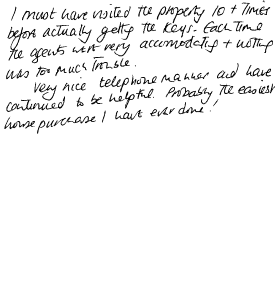 I must have visited the property 10 + times
before actually getting the keys. Each time
the agents were very accomodating + nothing
was too much trouble.
Very nice telephone manner and have
continued to be helpful. Probably the easiest
house purchase I have ever done!